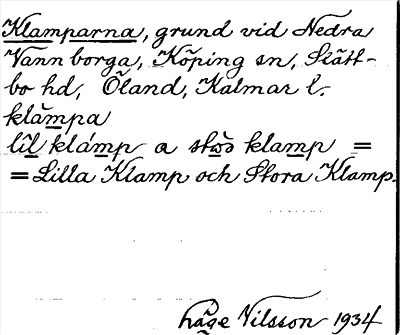 Klamparna, grund vid Nedra
Vannborga, Köping sn, Slätt-
bo hd, Öland, Kalmar l.
klàmpa
lìl klámp a stωs klamp =
= Lilla Klamp och Stora Klamp.
håge Nilsson 1934